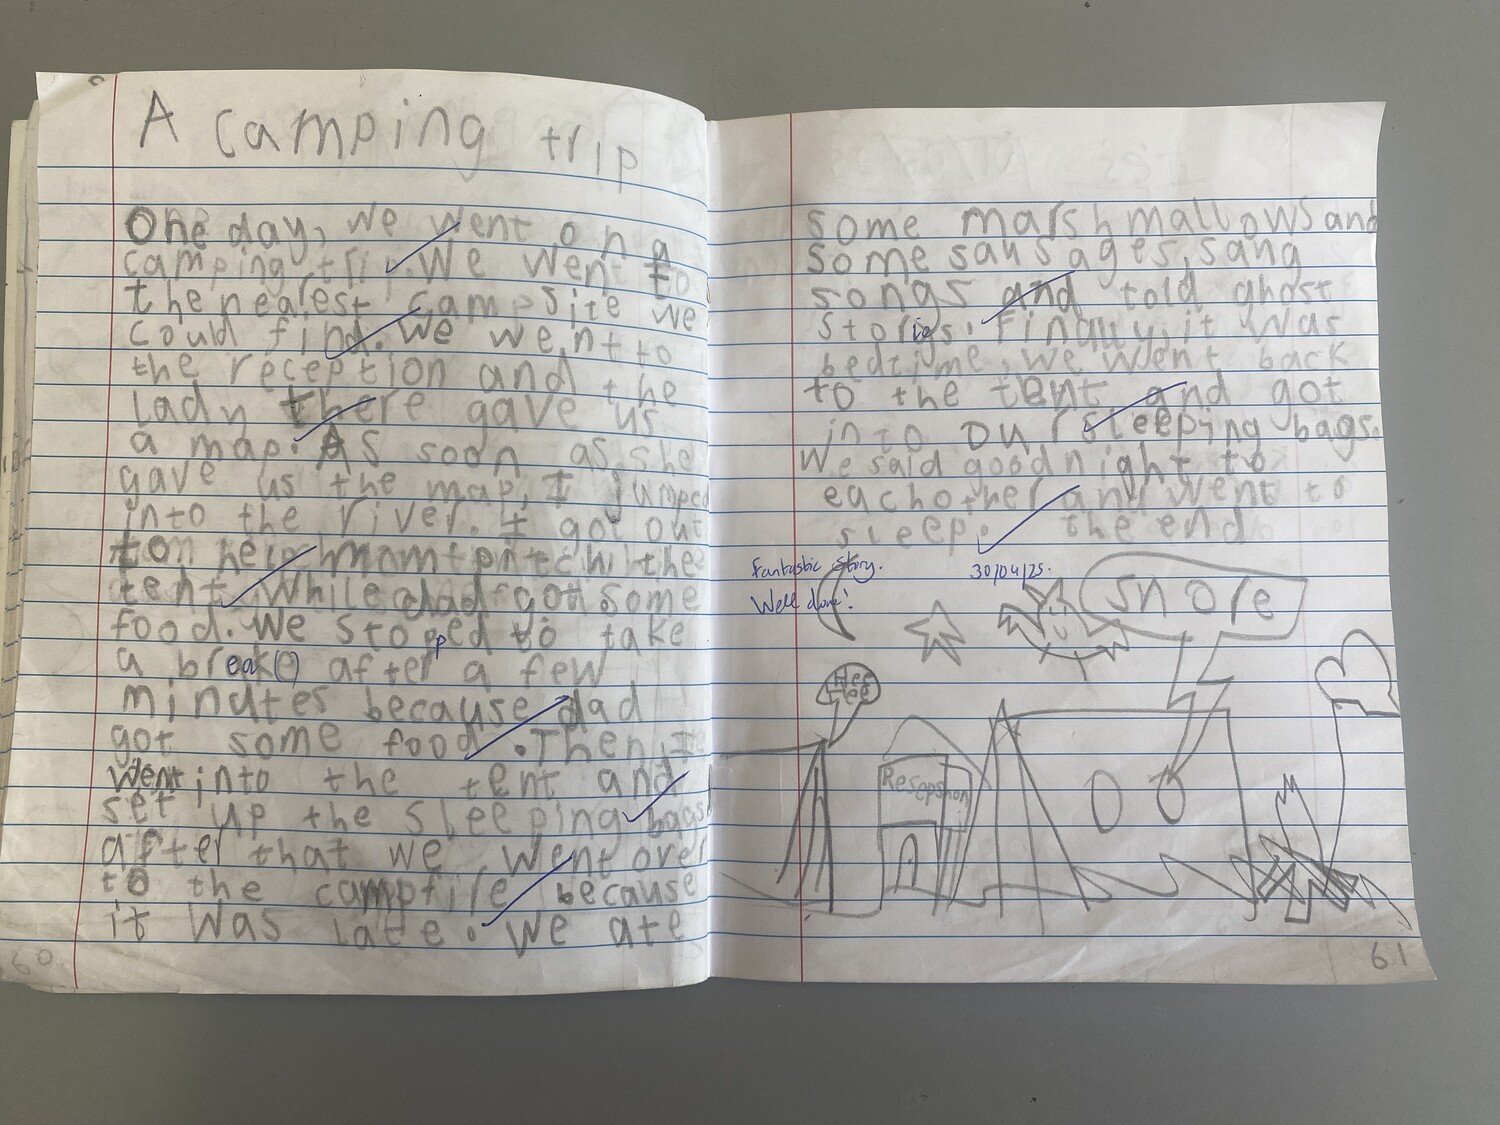 A camping trip
One day, we went on a
camping trip. We went to
the nearest campsite we
could find. We went to
the reception and the
Lady there gave us
a map. As soon as she
gave us the map, I jumped
into the river. I got out
to help mom pitch the
tent. While dad got some
food. We stopped to take
a break(e) after a few
minutes because dad
got some food. Then, I
went into the tent and
set up the sleeping bags
after that we went over
to the campfire because
it was late. We ate
60
some marshmallows and
some sausages, sang
songs and told ghost
stories. Finally, it was
bedtime, we went back
to the tent and got
into our sleeping bags.
We said goodnight to
each other and went to
sleep. the end
Fantastic story.
Well done!
30/04/25.
snore
Hee
Hee
Resepshon
61